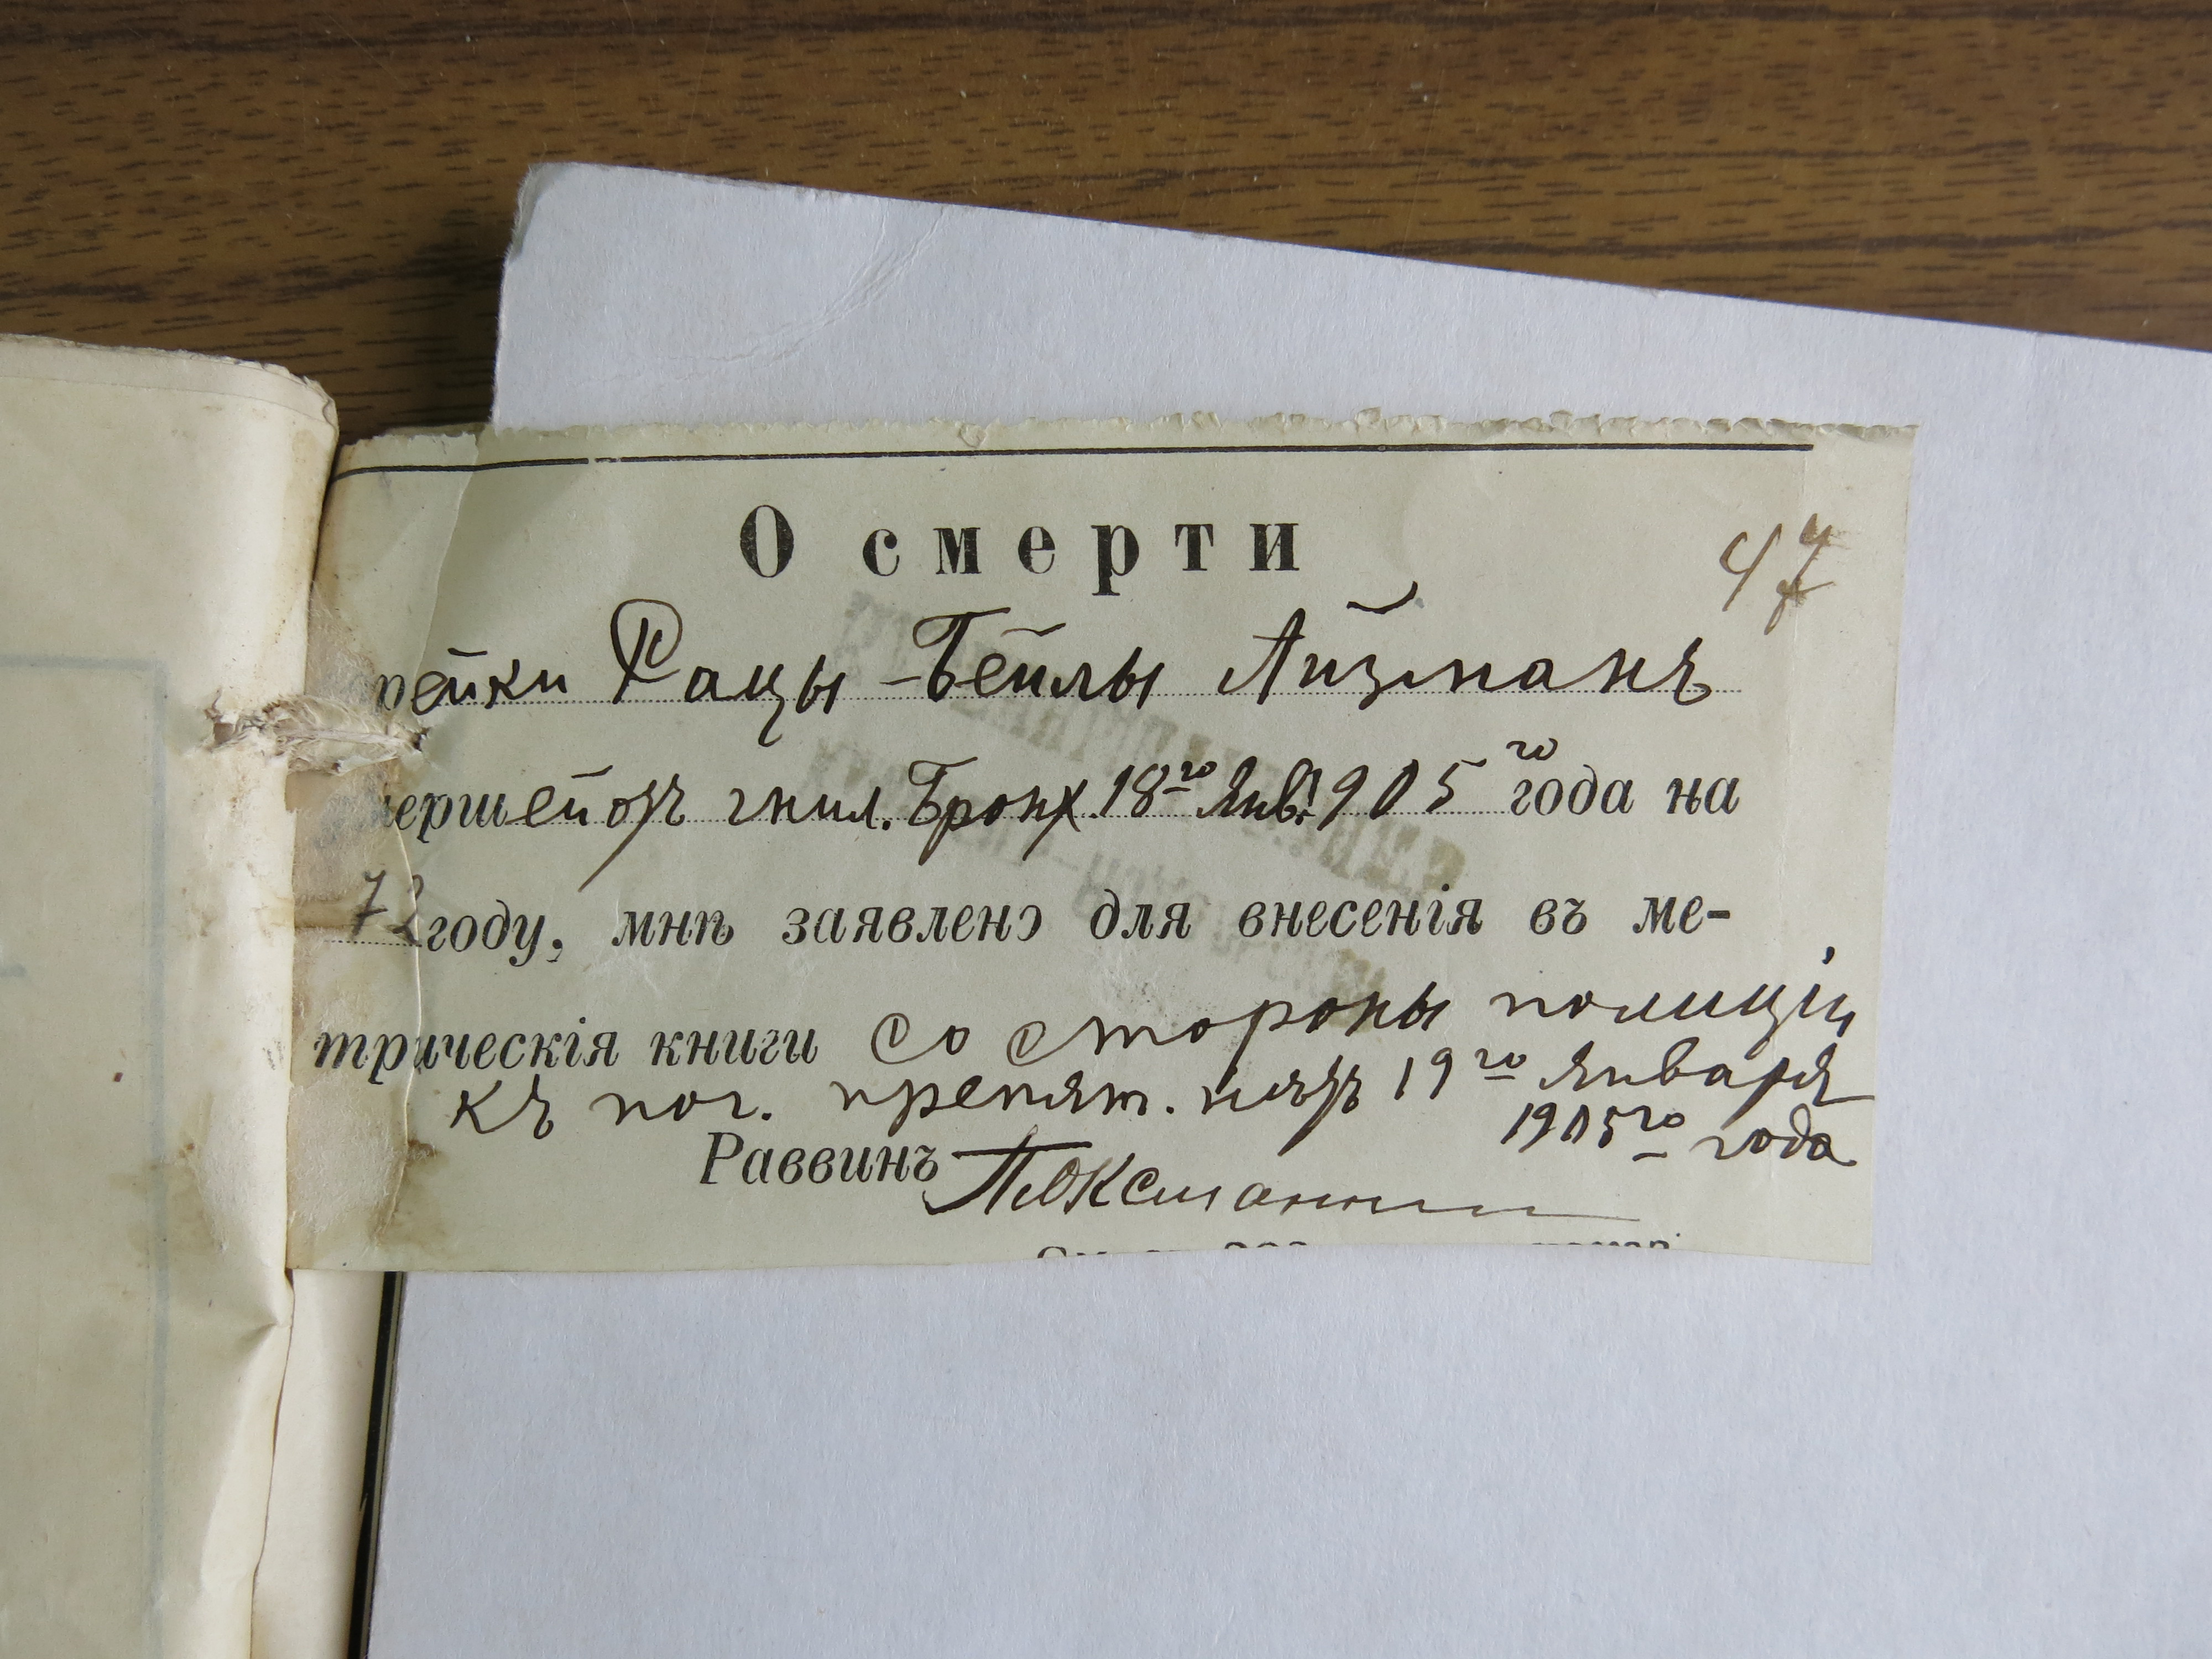 О смерти
47
рейки Рацы-Бейлы Айзманъ
мершей отъ гнил. Бронх. 18го Янв. 1905го года на
72 году, мнѣ заявлено для внесенія въ ме-
трическія книги со стороны полиціи,
къ пог. препят. нѣтъ 19го Января
1905го года
Раввинъ